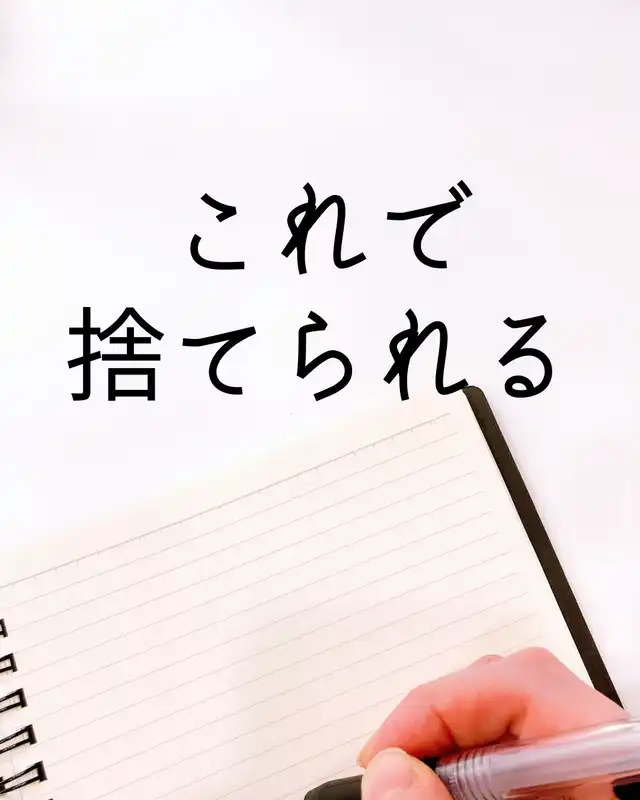 これで
捨てられる